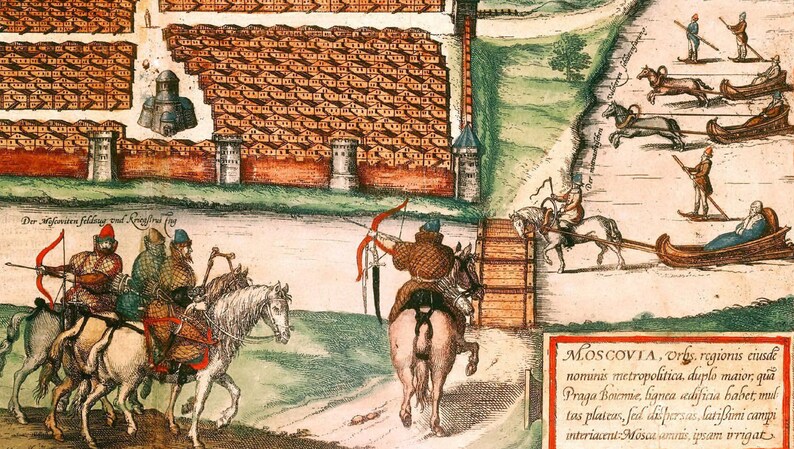 Der Moscoviten feldzug vnd Kriegsrustung
MOSCOVIA, Vrbs, regionis eiusdē
nominis metropolitica, duplo maior, quā
Praga Boiemiæ, lignea ædificia habet, mul
tas plateas, sed dispersas, latissimi campi
interiacent: Mosca amnis, ipsam irrigat.